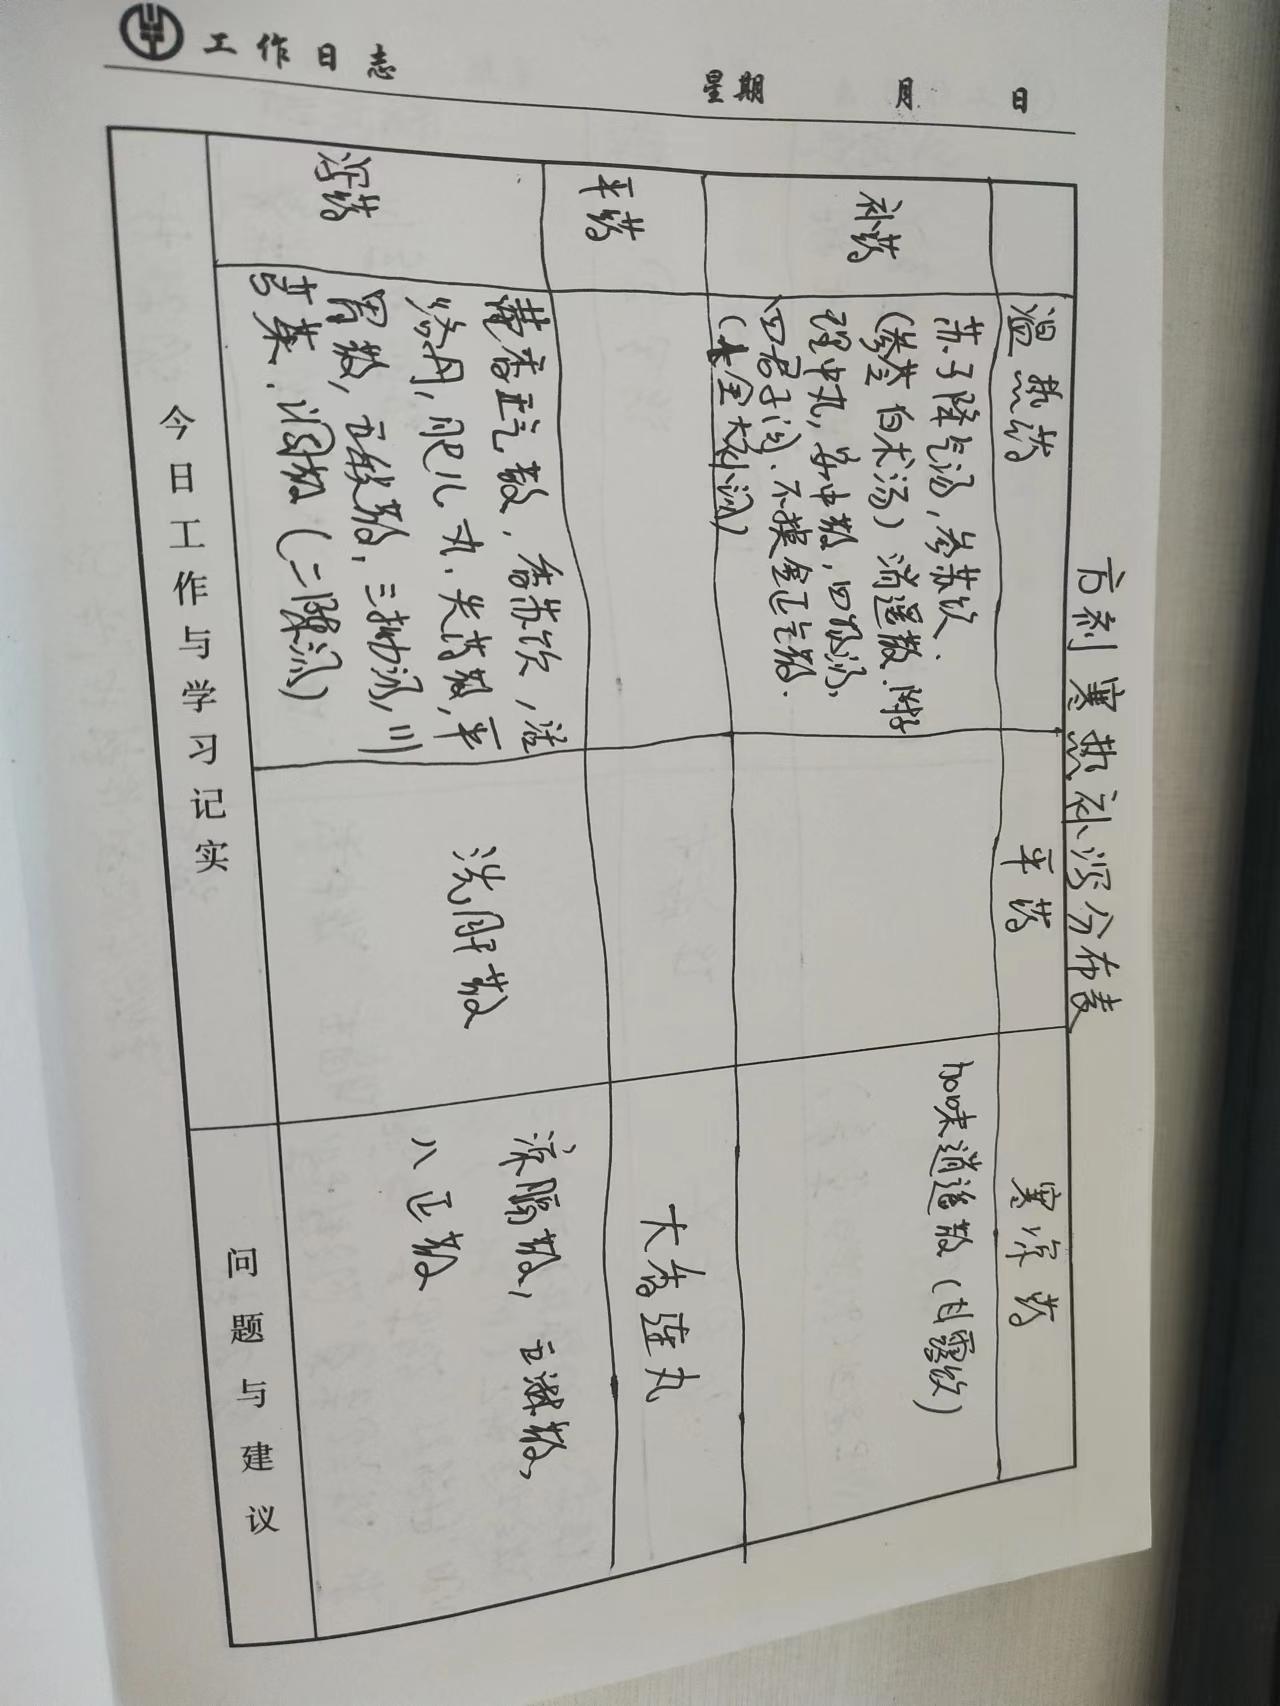 工作日志
星期 月 日
方剂寒热补泻分布表
温热药 平药 寒凉药
补药
苏子降气汤,参苏饮、
(参苓白术汤)逍遥散.附子
理中丸,安中散,四逆汤,
四君子汤.不换金正气散.
(十全大补汤)
加味逍遥散(甘露饮)
平药
大香连丸
泻药
藿香正气散,香苏饮,活
络丹,肥儿丸.失笑散,平
胃散,五积散,三拗汤,川
芎茶
(二陈汤)
洗肝散
凉膈散,五淋散,
八正散
今日工作与学习记实
问题与建议